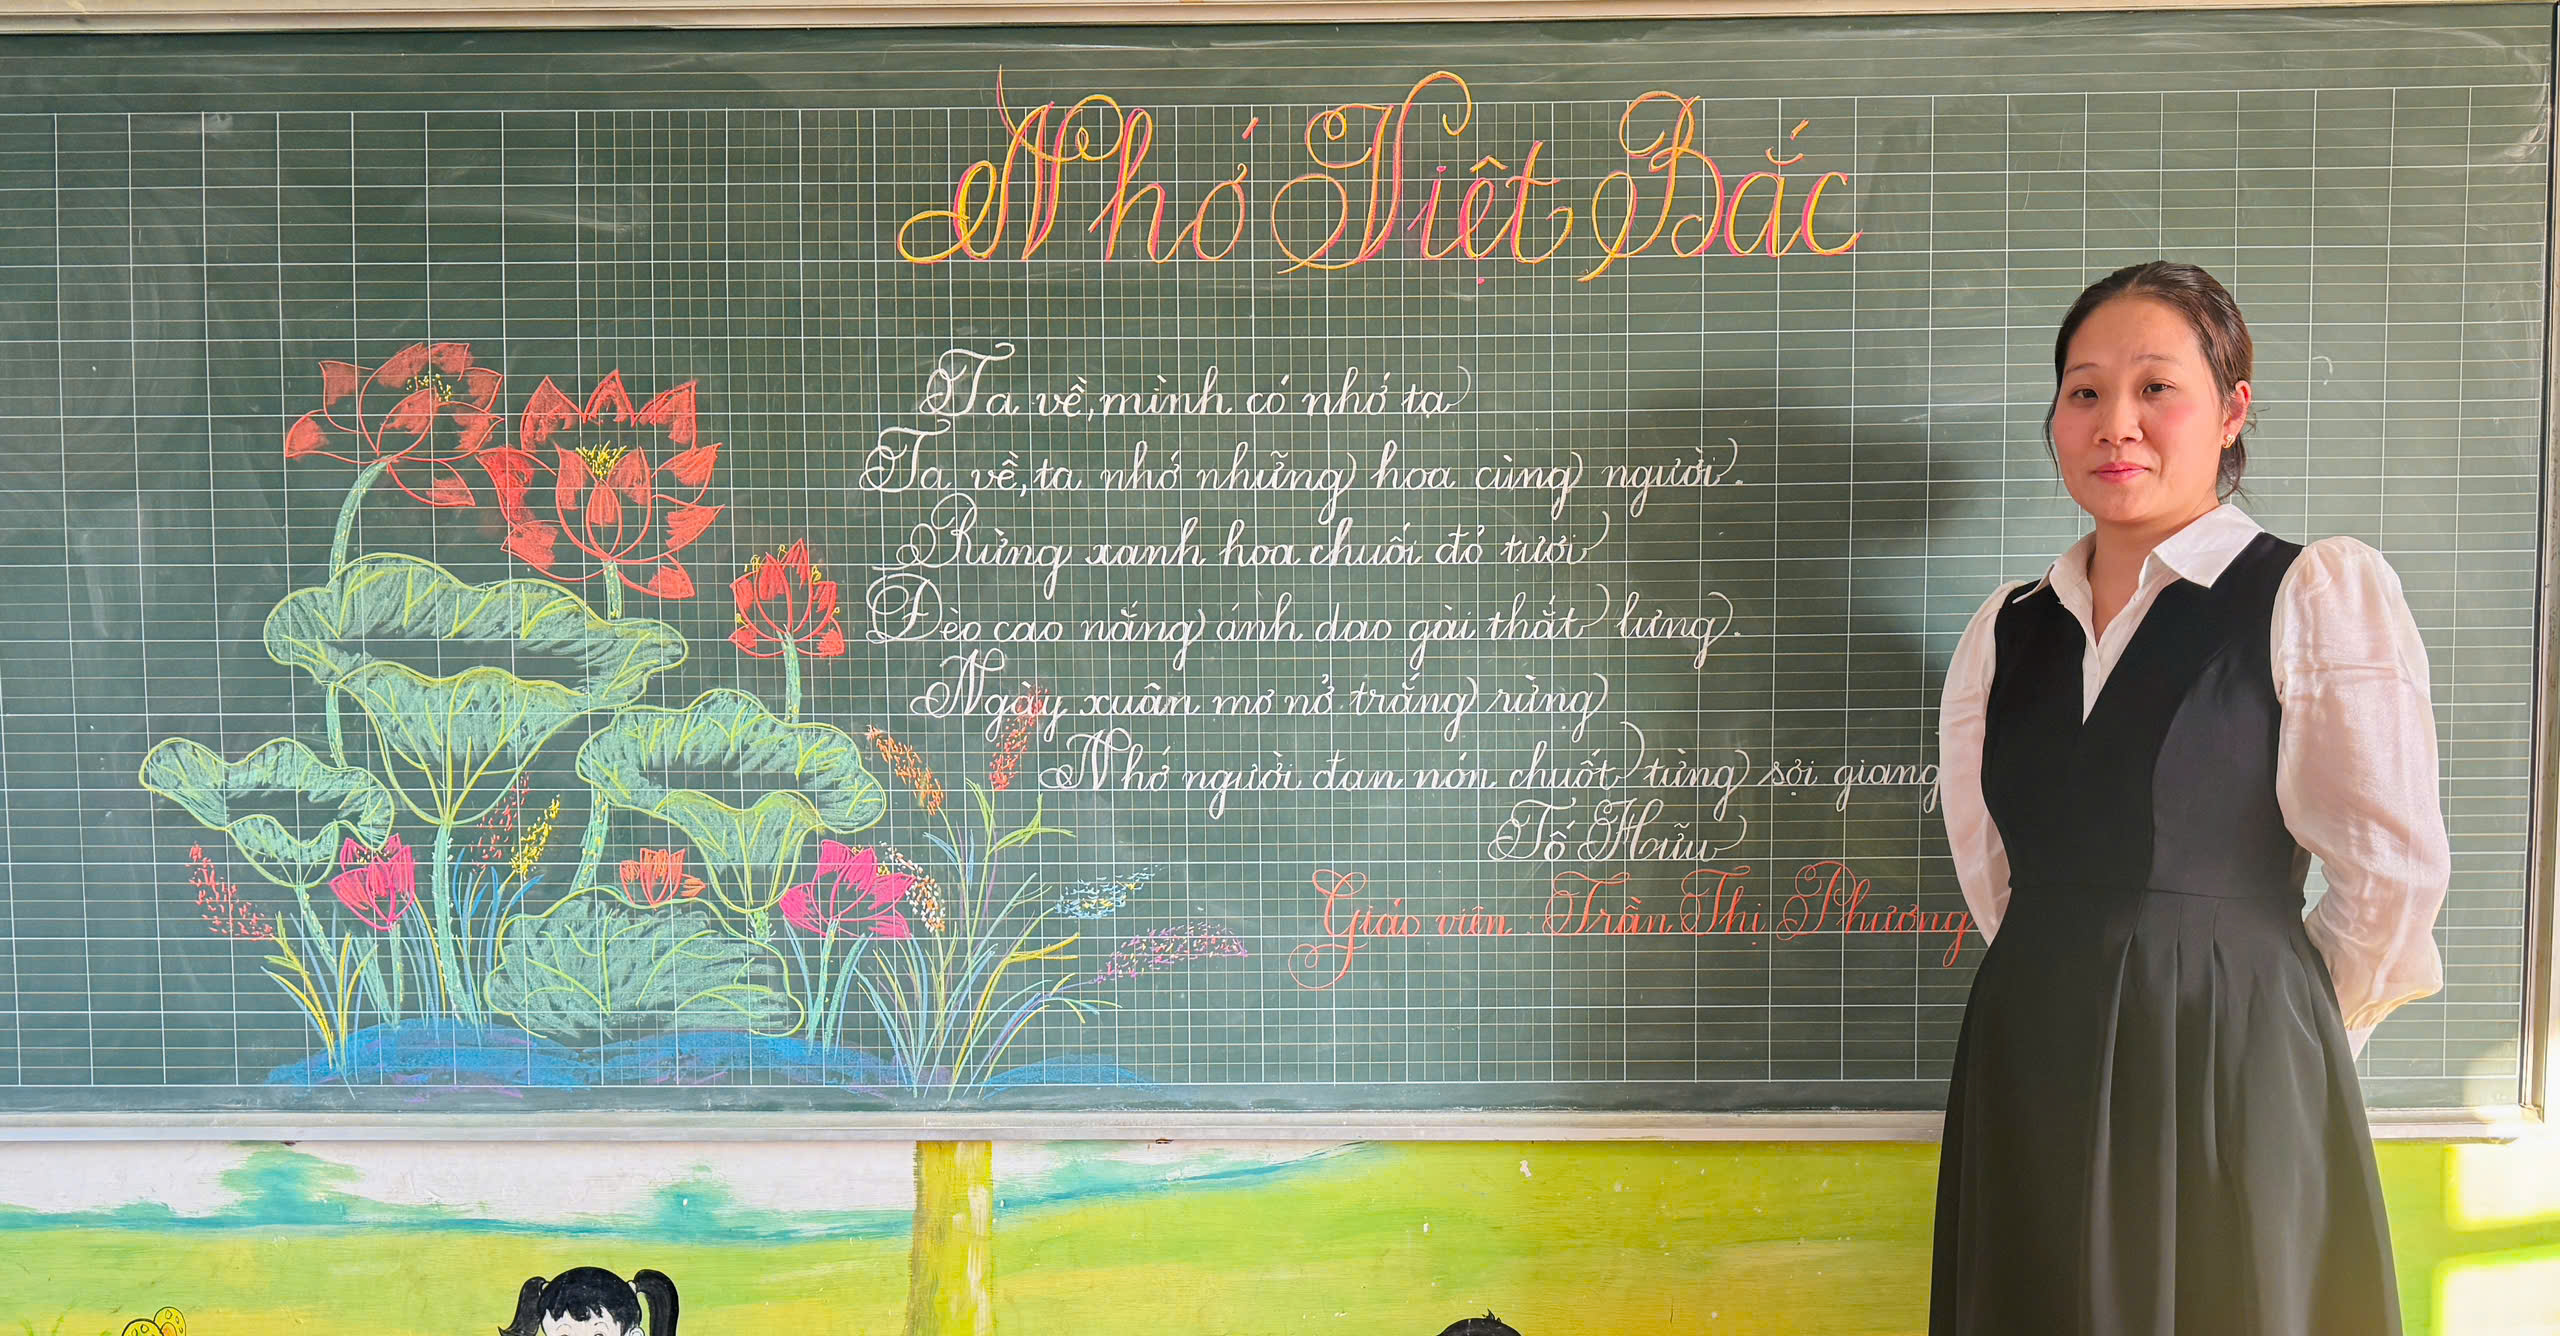 Nhớ Việt Bắc
Ta về, mình có nhớ ta
Ta về, ta nhớ những hoa cùng người.
Rừng xanh hoa chuối đỏ tươi
Đèo cao nắng ánh dao gài thắt lưng.
Ngày xuân mơ nở trắng rừng
Nhớ người đan nón chuốt từng sợi giang
Tố Hữu
Giáo viên: Trần Thị Phương